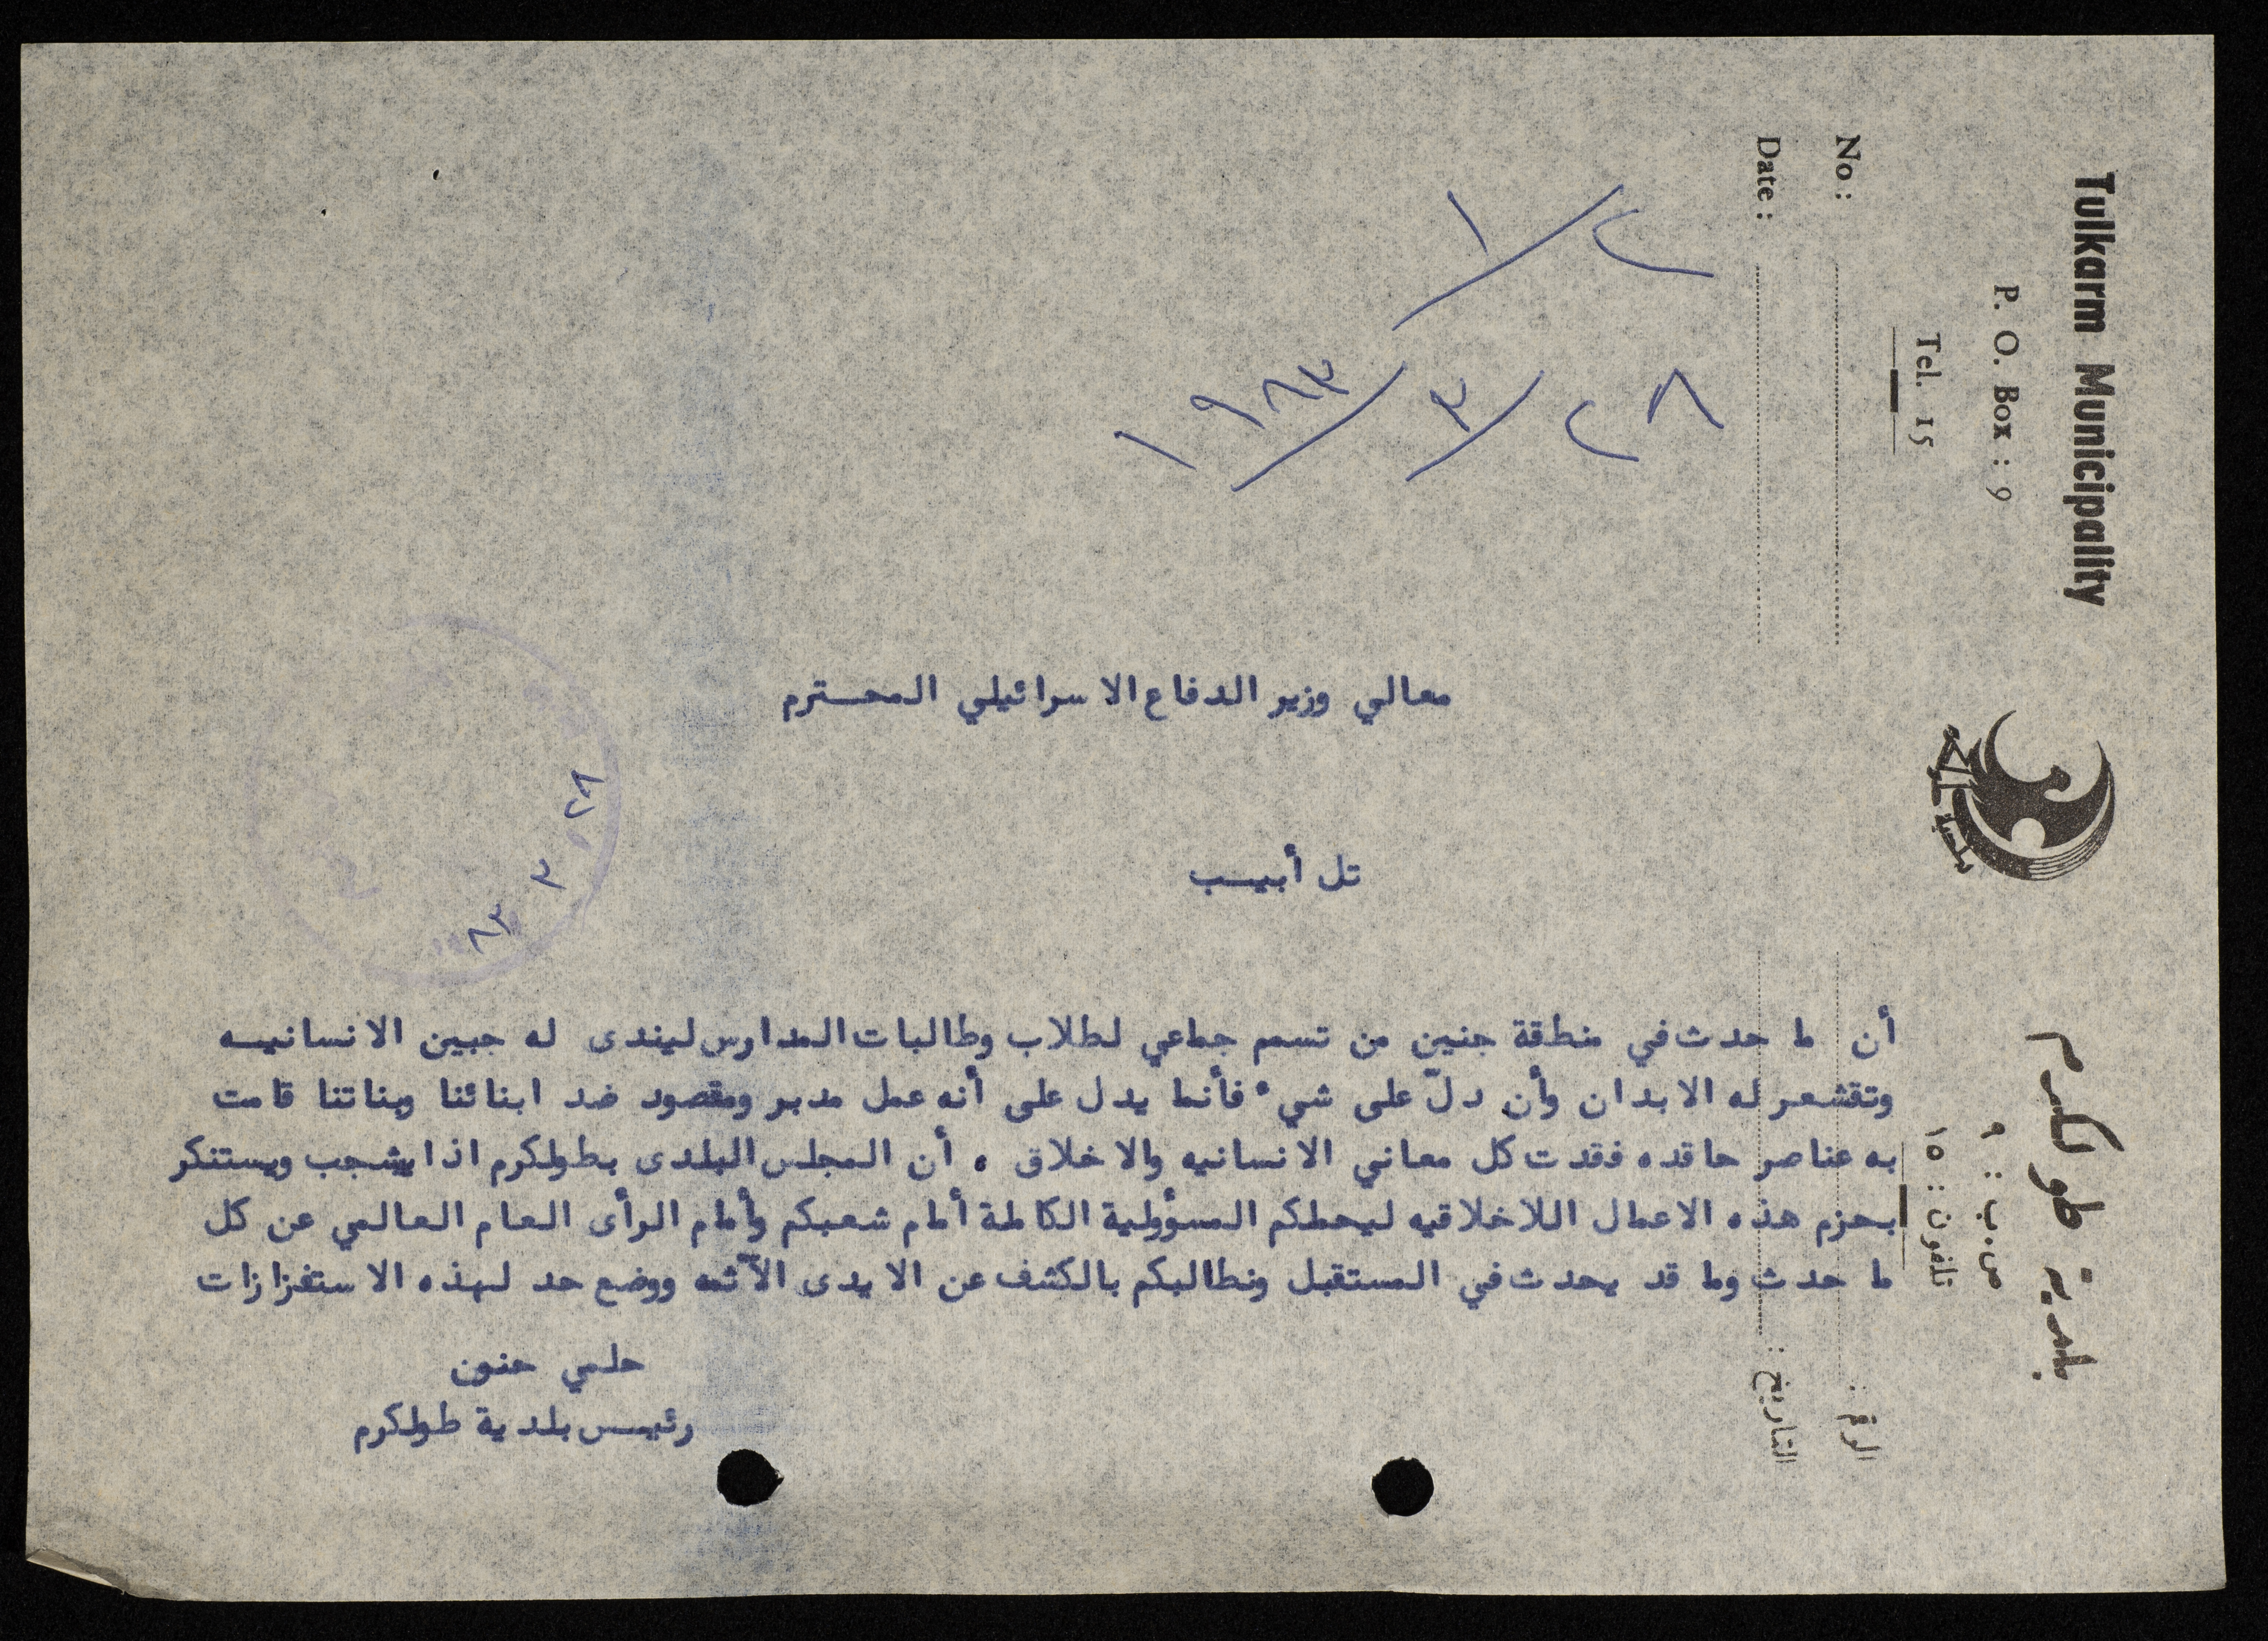 Tulkarm Municipality
P. O. Box : 9
Tel. 15
No :
Date :
بلدية طولكرم
ص.ب : ٩
تلفون : ١٥
الرقم :
التاريخ :
بلدية طولكرم
٢/١
٢٨/٣/١٩٨٣
معالي وزير الدفاع الاسرائيلي المحـترم
تل أبيـب
أن ما حدث في منطقة جنين من تسمم جماعي لطلاب وطالبات المدارس ليندى له جبين الانسانيـه
وتقشعر له الابدان وأن دلّ على شيء فأنما يدل على أنه عمل مدبر ومقصود ضد ابنائنا وبناتنا قامت
به عناصر حاقده فقدت كل معاني الانسانيه والاخلاق ٠ أن المجلس البلدى بطولكرم اذ يشجب ويستنكر
بحزم هذه الاعمال اللاخلاقيه ليحملكم المسؤولية الكاملة أمام شعبكم وأمام الرأى العام العالمي عن كل
ما حدث وما قد يحدث في المستقبل ونطالبكم بالكشف عن الايدى الآثمه ووضع حد لهذه الاستفزازات
حلمي حنون
رئيـس بلدية طولكرم
٢٨ ٣ ٨٣